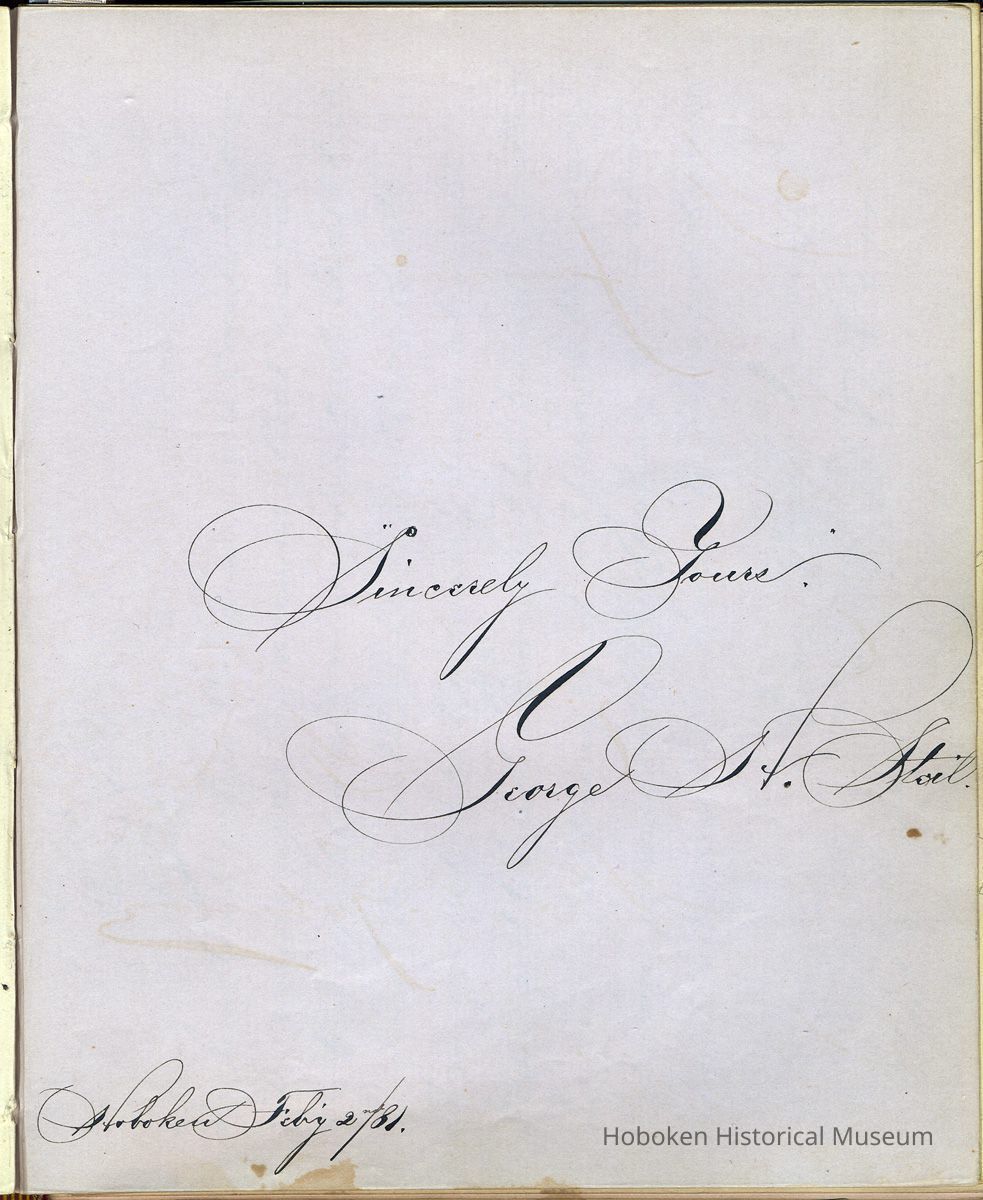 Sincerely Yours.
George H. Steil.
Hoboken Feb'y 2nd/81.
Hoboken Historical Museum